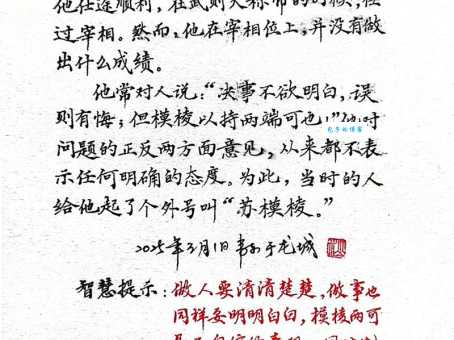 他仕途顺利，在武则天称帝的时候，担
过宰相。然而，他在宰相位上，并没有做
出什么成绩。
他常对人说：“决事不欲明白，误
则有悔；但模棱以持两端可也！”对
问题的正反两方面意见，从来都不表
示任何明确的态度。为此，当时的人
给他起了个外号叫“苏模棱。”
2025年3月1日 于龙城
智慧提示：做人要清清楚楚，做事也
同样要明明白白，模棱两可